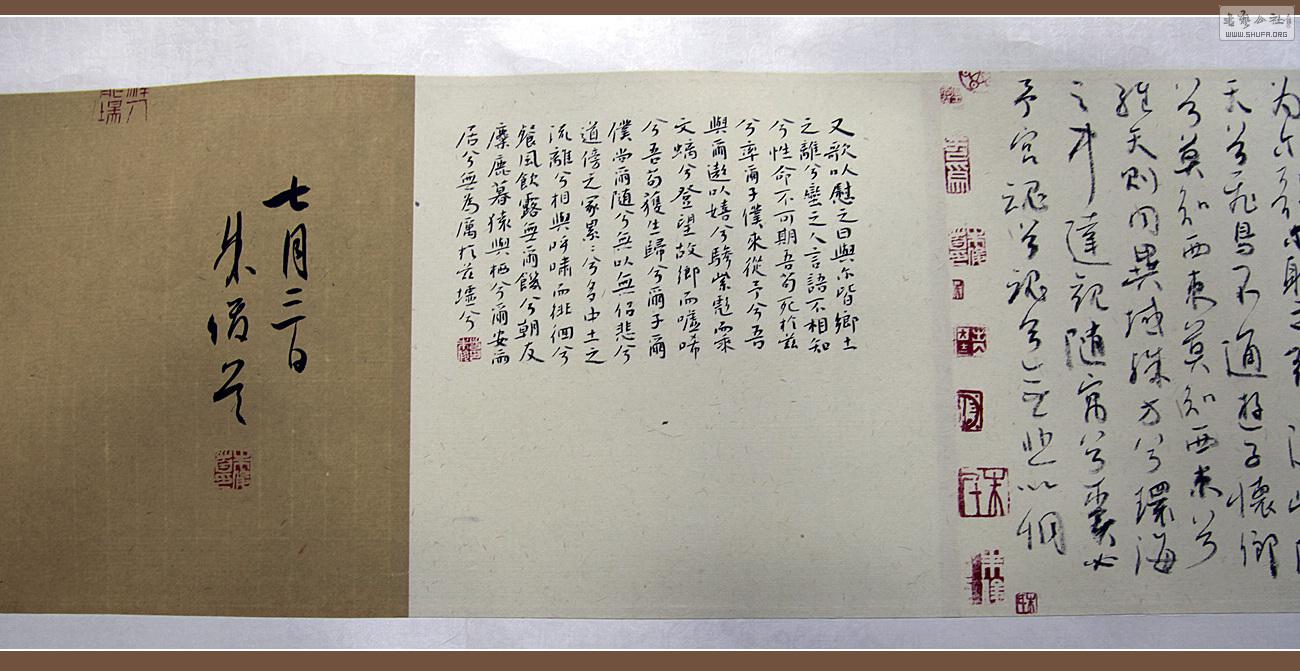 天兮飛鳥不通遊子懷鄉
兮莫知西東莫知西東兮
維天則同異域殊方兮環海
之中達觀隨寓兮奚必
予宮魂兮魂兮無悲以恫
又歌以慰之曰與尔皆鄉土
之離兮蠻之人言語不相知
兮性命不可期吾苟死於茲
兮率爾子僕來從予兮吾
與爾遨以嬉兮驂紫彪而乘
文螭兮登望故鄉而噓唏
兮吾苟獲生歸兮爾子爾
僕尚爾隨兮無以無侶悲兮
道傍之冢累〻兮多中土之
流離兮相與呼嘯而徘徊兮
餐風飲露無爾饑兮朝友
麋鹿暮猿與栖兮爾安而
居兮無為厲於茲墟兮
七月日
朱
WWW.SHUFA.ORG